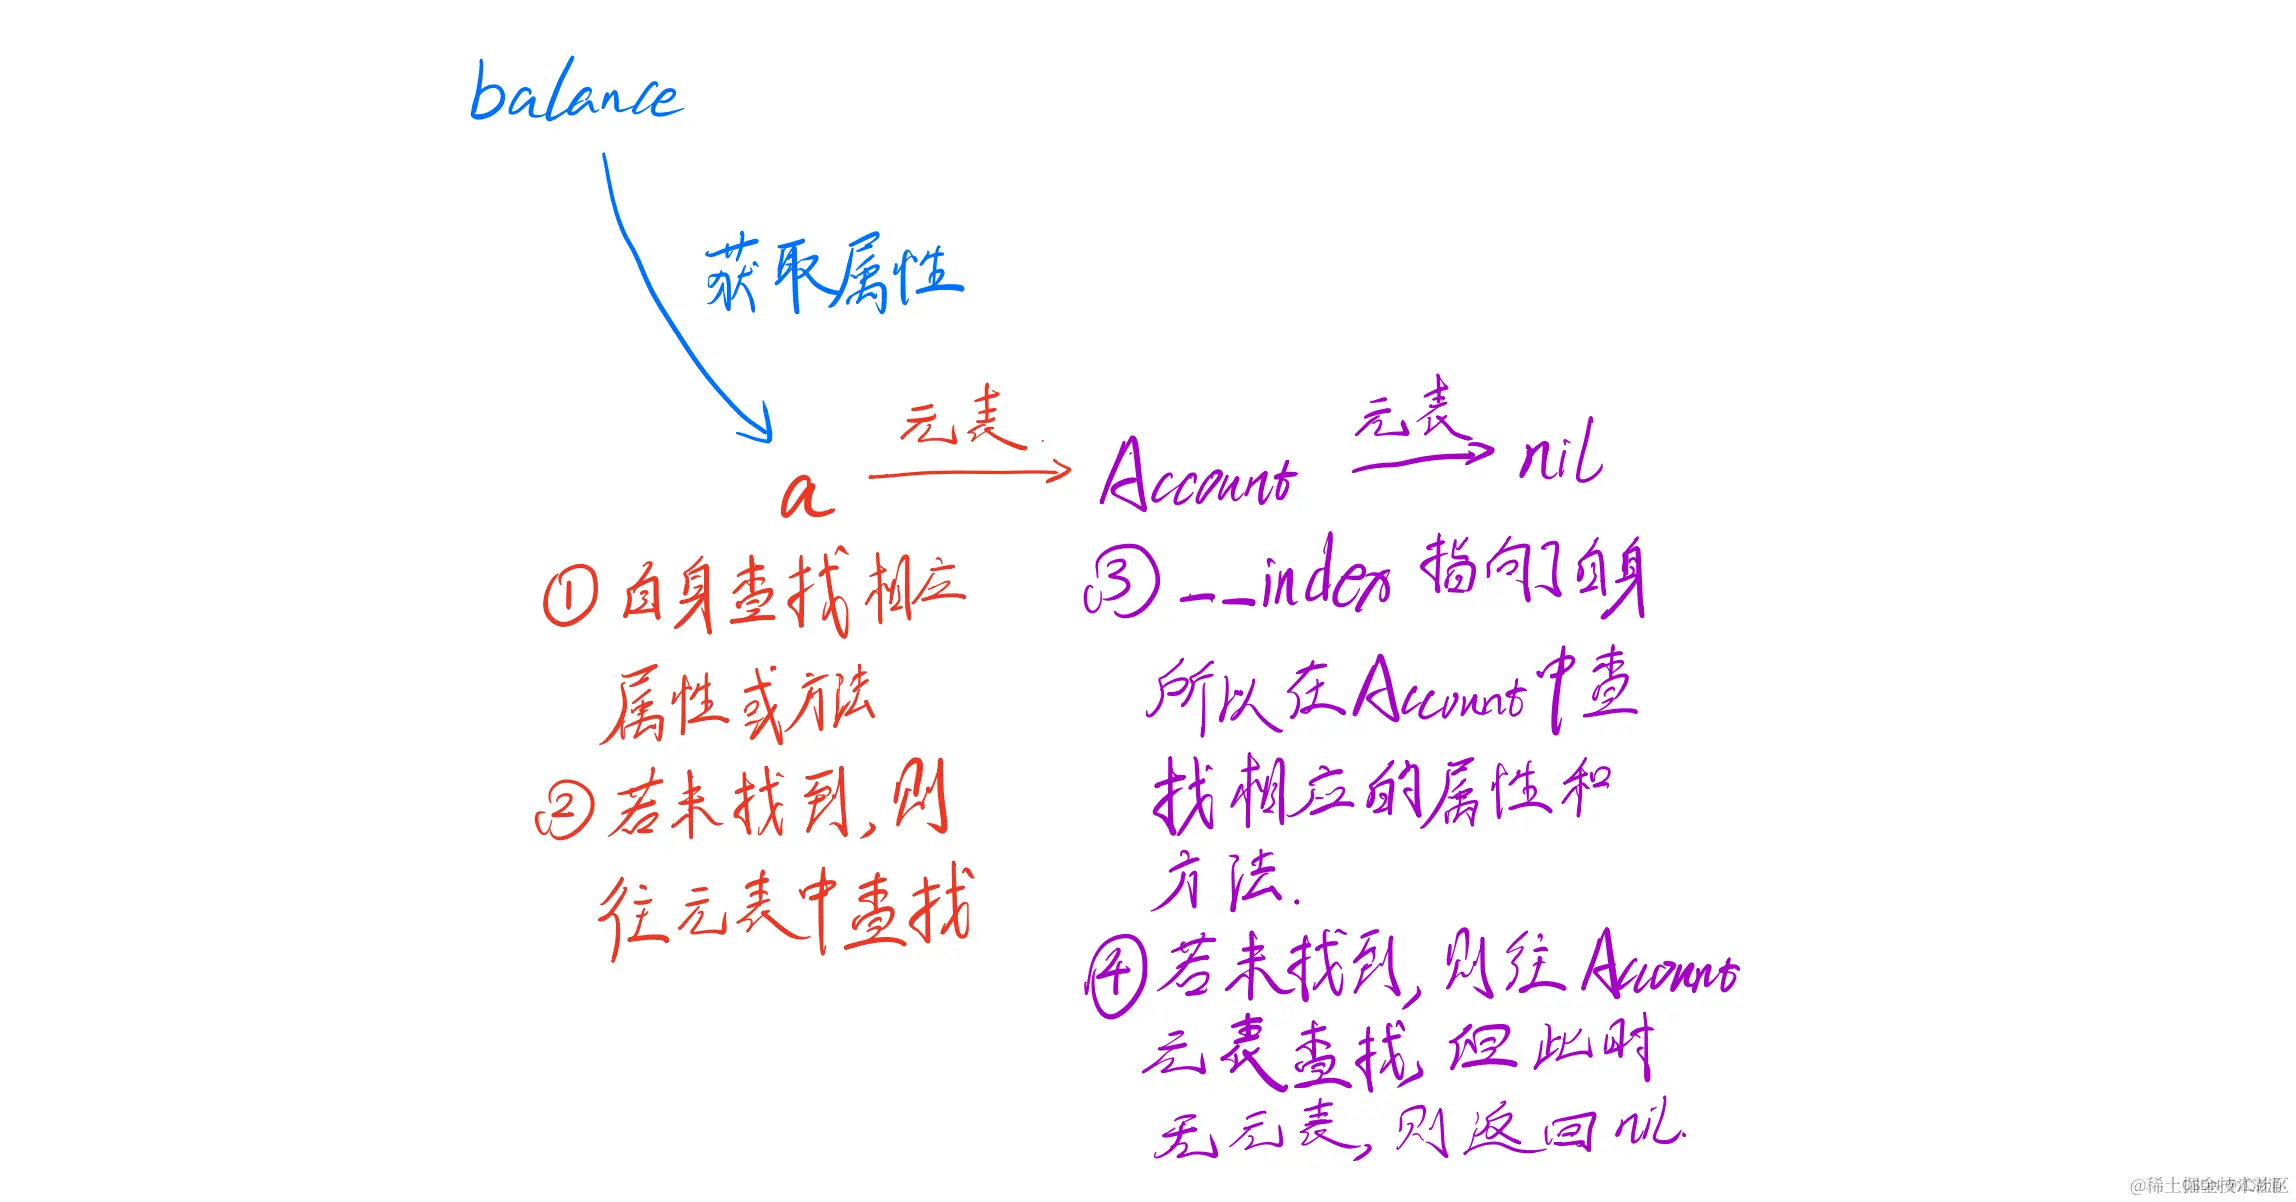 balance
获取属性
元表
元表
a
Account
nil
① 自身查找相应
属性或方法
② 若未找到,则
往元表中查找
③ __index 指向了自身
所以在Account中查
找相应的属性和
方法.
④ 若未找到,则往Account
元表查找,但此时
无元表,则返回nil.
@稀土掘金技术社区